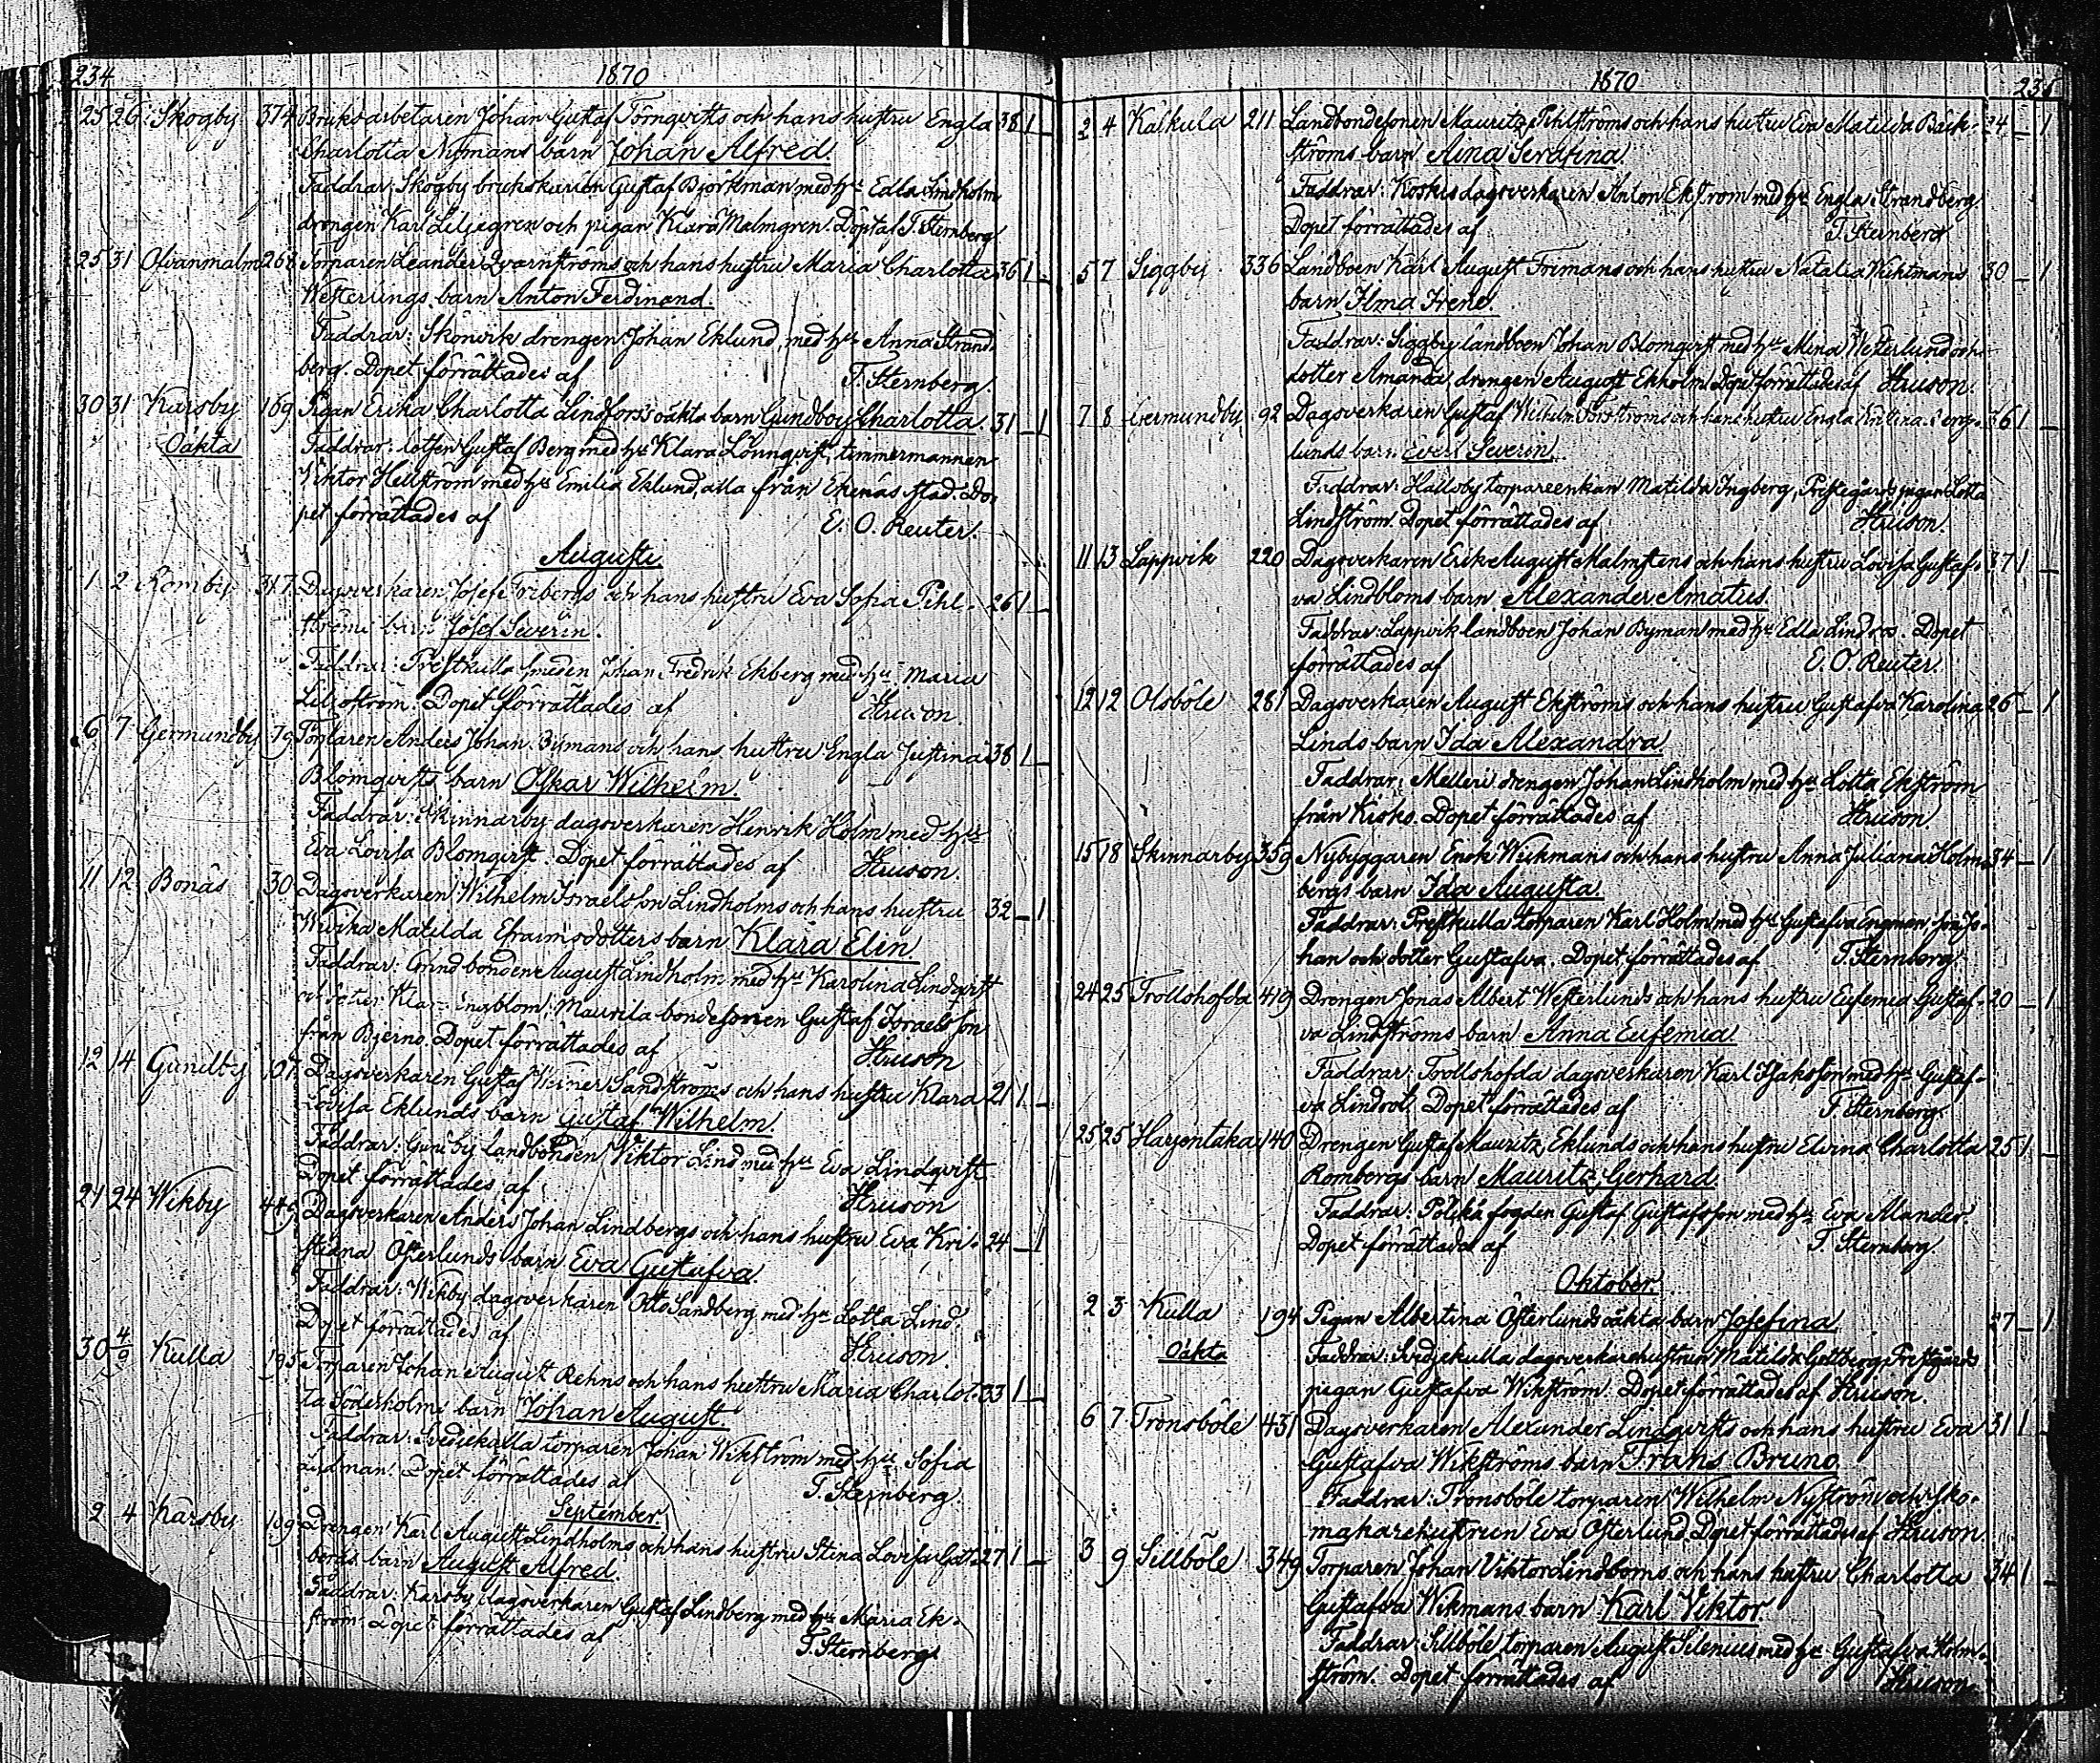 234 1870
25 26 Skogby 374 Bruksarbetaren Johan Gustaf Törnqvists och hans hustru Engla 38 1 _
Charlotta Nymans barn Johan Alfred.
Faddrar: Skogby bruks Gustaf Björkman med h:u Edla Lindholm
drengen Karl Liljegren och pigan Klara Malmgren. Dopt af T. Sternberg
25 31 Ofvanmalm 268 Torparen Leander Qvarnströms och hans hustru Maria Charlotta 36 1 _
Westerlings barn Anton Ferdinand.
Faddrar: Skönvik drengen Johan Eklund, med h:u Anna Strand-
berg. Dopet förrättades af T. Sternberg.
30 31 Karsby 169 Pigan Erika Charlotta Lindfors's oäkta barn Gundborg Charlotta. 31 _ 1
Oäkta Faddrar: lotsen Gustaf Berg med h:u Klara Lönnqvist, timmermannen
Viktor Hellström med h:u Emilia Eklund, alla från Ekenäs stad. Do-
pet förrättades af E. O. Reuter.
Augusti.
1 2 Romby 317 Dagsverkaren Josef Fribergs och hans hustru Eva Sofia Pihl- 26 1 _
ströms barn Josef Severin.
Faddrar: Prestkulla smeden Johan Fredrik Ekberg med h:u Maria
Liljeström. Dopet förrättades af Hruson.
6 7 Germundby 79 Torparen Anders Johan Bymans och hans hustru Engla Justina 38 1 _
Blomqvists barn Oskar Wilhelm.
Faddrar: Skinnarby dagsverkaren Henrik Holm med h:u
Eva Lovisa Blomqvist. Dopet förrättades af Hruson.
11 12 Bonäs 30 Dagsverkaren Wilhelm Israelsson Lindholms och hans hustru 32 _ 1
Wivika Matilda Efraimsdotters barn Klara Elin.
Faddrar: Grind bonden August Lindholm med h:u Karolina Lindqvist
Maurila bondesonen Gustaf Israelsson
från Bjerno. Dopet förrättades af Hruson
12 14 Gundby 107 Dagsverkaren Gustaf Werner Sandströms och hans hustru Klara 21 1 _
Lovisa Eklunds barn Gustaf Wilhelm.
Faddrar: Gundby landbonden Viktor Lind med h:u Eva Lindqvist
Dopet förrättades af Hruson
21 24 Wikby 449 Dagsverkaren Anders Johan Lindbergs och hans hustru Eva Kri- 24 _ 1
stiana Österlunds barn Eva Gustafva.
Faddrar: Wikby dagsverkaren Otto Sandberg med h:u Lotta Lind.
Dopet förrättades af Hruson.
30 4/9 Kulla 195 Torparen Johan August Rehns och hans hustru Maria Charlot- 33 1 _
ta Söderholms barn Johan August.
Faddrar: Svedjekulla torparen Johan Wikström med h:u Sofia
Dopet förrättades af T. Sternberg.
September.
2 4 Karsby 169 Drengen Karl August Lindholms och hans hustru Stina Lovisa Gott- 27 1 _
bergs barn August Alfred.
Faddrar: Karsby dagsverkaren Gustaf Lindberg med h:u Maria Ek-
ström. Dopet förrättades af T. Sternberg.
1870 235
2 4 Kälkula 211 Landbondesonen Mauritz Pihlströms och hans hustru Eva Matilda Bäck- 24 _ 1
ströms barn Aina Serafina.
Faddrar: Koskis dagsverkaren Anton Ekström med h:u Engla Strandberg
Dopet förrättades af T. Sternberg
5 7 Siggby 336 Landboen Karl August Formans och hans hustru Natalia Wikmans 30 _ 1
barn Ilma Irene.
Faddrar: Siggby landboen Johan Blomqvist med h:u Mina Westerlund och
dotter Amanda, drengen August Ekholm. Dopet förrättades af Hruson.
7 8 Germundby 92 Dagsverkaren Gustaf Wilhelm Forströms och hans hustru Engla 36 1 _
lunds barn Evert Severin.
Faddrar: Hallsby torpareenkan Matilda Ingberg, Prestgårds pigan Lotta
Lindström. Dopet förrättades af Hruson.
11 13 Lappvik 220 Dagsverkaren Erik August Malmstens och hans hustru Lovisa Gustaf- 37 1 _
va Lindbloms barn Alexander Amatus.
Faddrar: Lappvik landboen Johan Byman med h:u Edla Lindros. Dopet
förrättades af E. O. Reuter.
12 12 Olsböle 281 Dagsverkaren August Ekströms och hans hustru Gustafva Karolina 26 _ 1
Linds barn Ida Alexandra.
Faddrar: Melleri drengen Johan Lindholm med h:u Lotta Ekström
från Kisko. Dopet förrättades af Hruson.
15 18 Skinnarby 359 Nybyggaren Enok Wikmans och hans hustru Anna Juliana Holm- 34 _ 1
bergs barn Ida Augusta.
Faddrar: Prestkulla torparen Karl Holm med h:u Gustafva Engman, son Jo-
han och dotter Gustafva. Dopet förrättades af T. Sternberg.
24 25 Trollshofda 419 Drengen Jonas Albert Westerlunds och hans hustru Eufemia Gustaf- 20 _ 1
va Lindströms barn Anna Eufemia.
Faddrar: Trollshofda dagsverkaren Karl Isaksson med h:u Gustaf-
va Lindroot. Dopet förrättades af T. Sternberg.
25 25 Harjentaka 140 Drengen Gustaf Mauritz Eklunds och hans hustru Elvina Charlotta 25 1 _
Rombergs barn Mauritz Gerhard.
Faddrar: Pölikä fogden Gustaf Gustafsson med h:u Eva Alander.
Dopet förrättades af T. Sternberg.
Oktober.
2 3 Kulla 194 Pigan Albertina Österlunds oäkta barn Josefina. 27 _ 1
Oäkta Faddrar: Svedjekulla dagsverkarehustrun Matilda Gottberg, Prestgårds
pigan Gustafva Wikström. Dopet förrättades af Hruson.
6 7 Tronsböle 431 Dagsverkaren Alexander Lindqvists och hans hustru Eva 31 1 _
Gustafva Wikströms barn Frans Bruno.
Faddrar: Tronsböle torparen Wilhelm Nyström och sko-
makarehustrun Eva Österlund. Dopet förrättades af Hruson.
3 9 Sillböle 349 Torparen Johan Viktor Lindboms och hans hustru Charlotta 34 1 _
Gustafva Wikmans barn Karl Viktor.
Faddrar: Sillböle torparen August Silenius med h:u Gustafva Holm-
ström. Dopet förrättades af Hruson.